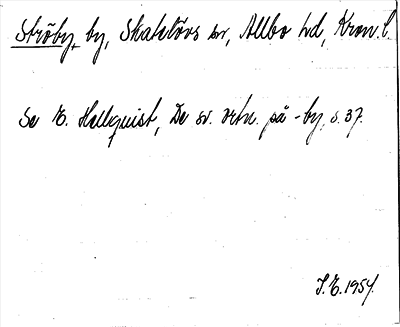 Ströby, by, Skatelövs sn, Allbo hd, Kron. l.
Se E. Hellquist, De sv. ortn. på -by, s. 37.
J.E. 1954.